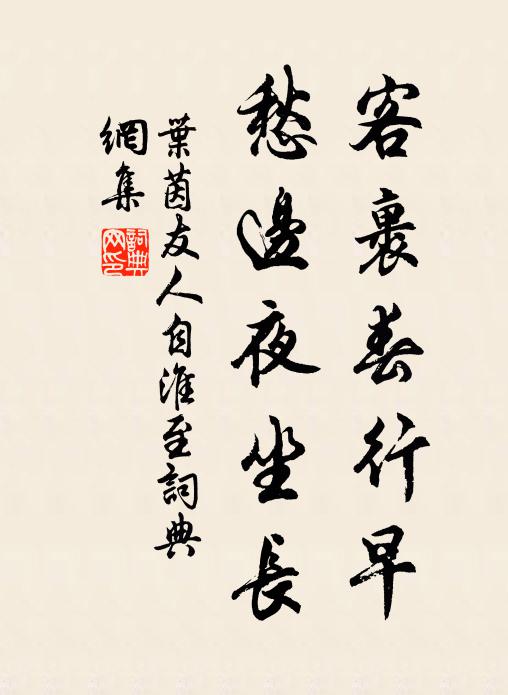 客裏春行早
愁邊夜坐長
葉茵友人自淮至詞典
網集
詞典網印